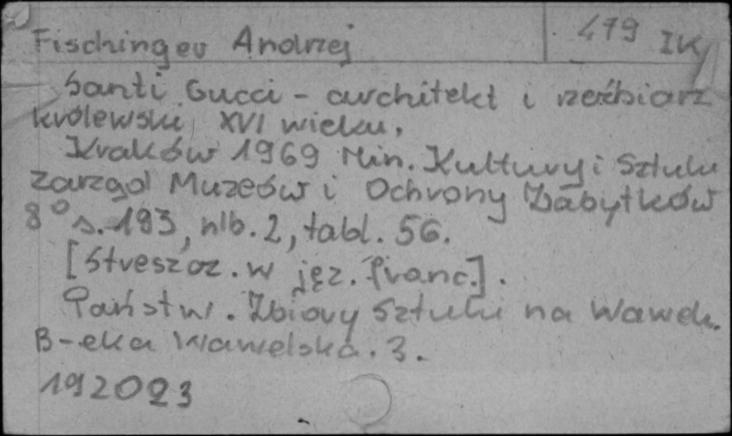 Fischinger Andrzej 479 IK
Santi Gucci - architekt i rzeźbiarz
królewski XVI wieku.
Kraków 1969 Min. Kultury i Sztuki
Zarząd Muzeów i Ochrony Zabytków
8° s. 193, nlb. 2, tabl. 56.
[Streszcz. w jęz. franc.].
Państw. Zbiory Sztuki na Wawelu.
B-eka Wawelska. 3.
192023